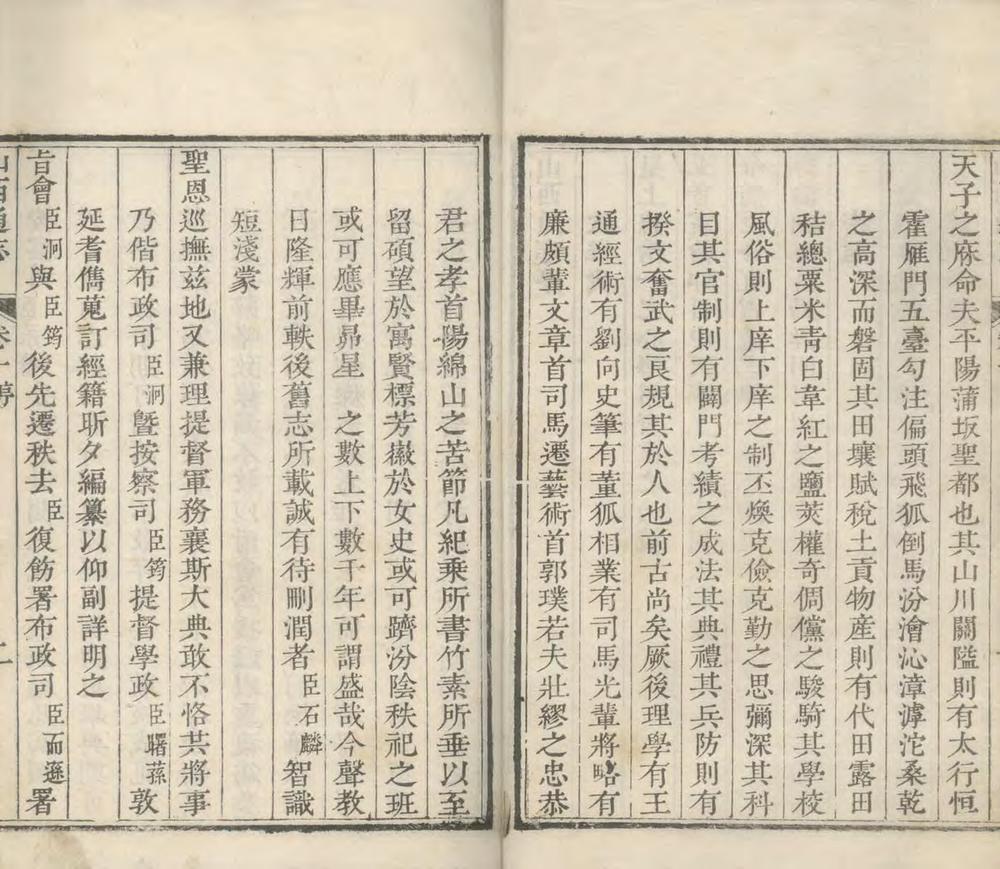 天子之庥命夫平陽蒲坂聖都也其山川關隘則有太行恒
霍雁門五臺勾注偏頭飛狐倒馬汾澮沁漳滹沱桑乾
之高深而磐固其田壤賦稅土貢物産則有代田露田
秸總粟米靑白韋紅之鹽莢權奇倜儻之駿騎其學校
風俗則上庠下庠之制丕煥克儉克勤之思彌深其科
目其官制則有闢門考績之成法其典禮其兵防則有
揆文奮武之良規其於人也前古尚矣厥後理學有王
通經術有劉向史筆有董狐相業有司馬光輩將略有
廉頗輩文章首司馬遷藝術首郭璞若夫壯繆之忠恭
君之孝首陽綿山之苦節凡紀乘所書竹素所垂以至
留碩望於寓賢標芳徽於女史或可躋汾陰秩祀之班
或可應畢昴星之數上下數千年可謂盛哉今聲教
日隆輝前軼後舊志所載誠有待刪潤者臣石麟智識
短淺蒙
聖恩巡撫茲地又兼理提督軍務襄斯大典敢不恪共將事
乃偕布政司臣泂暨按察司臣筠提督學政臣曙蓀敦
延耆儁蒐訂經籍昕夕編纂以仰副詳明之
旨會臣泂與臣筠後先遷秩去臣復飭署布政司臣而遜署
山西通志 卷 序 二